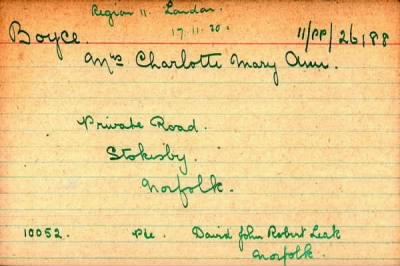 Region 11. London.
17.11.20.
Boyce. 11/PP/26188
Mrs Charlotte Mary Ann.
Private Road.
Stokesby.
Norfolk.
10052. Pte. David John Robert Leak
Norfolk.